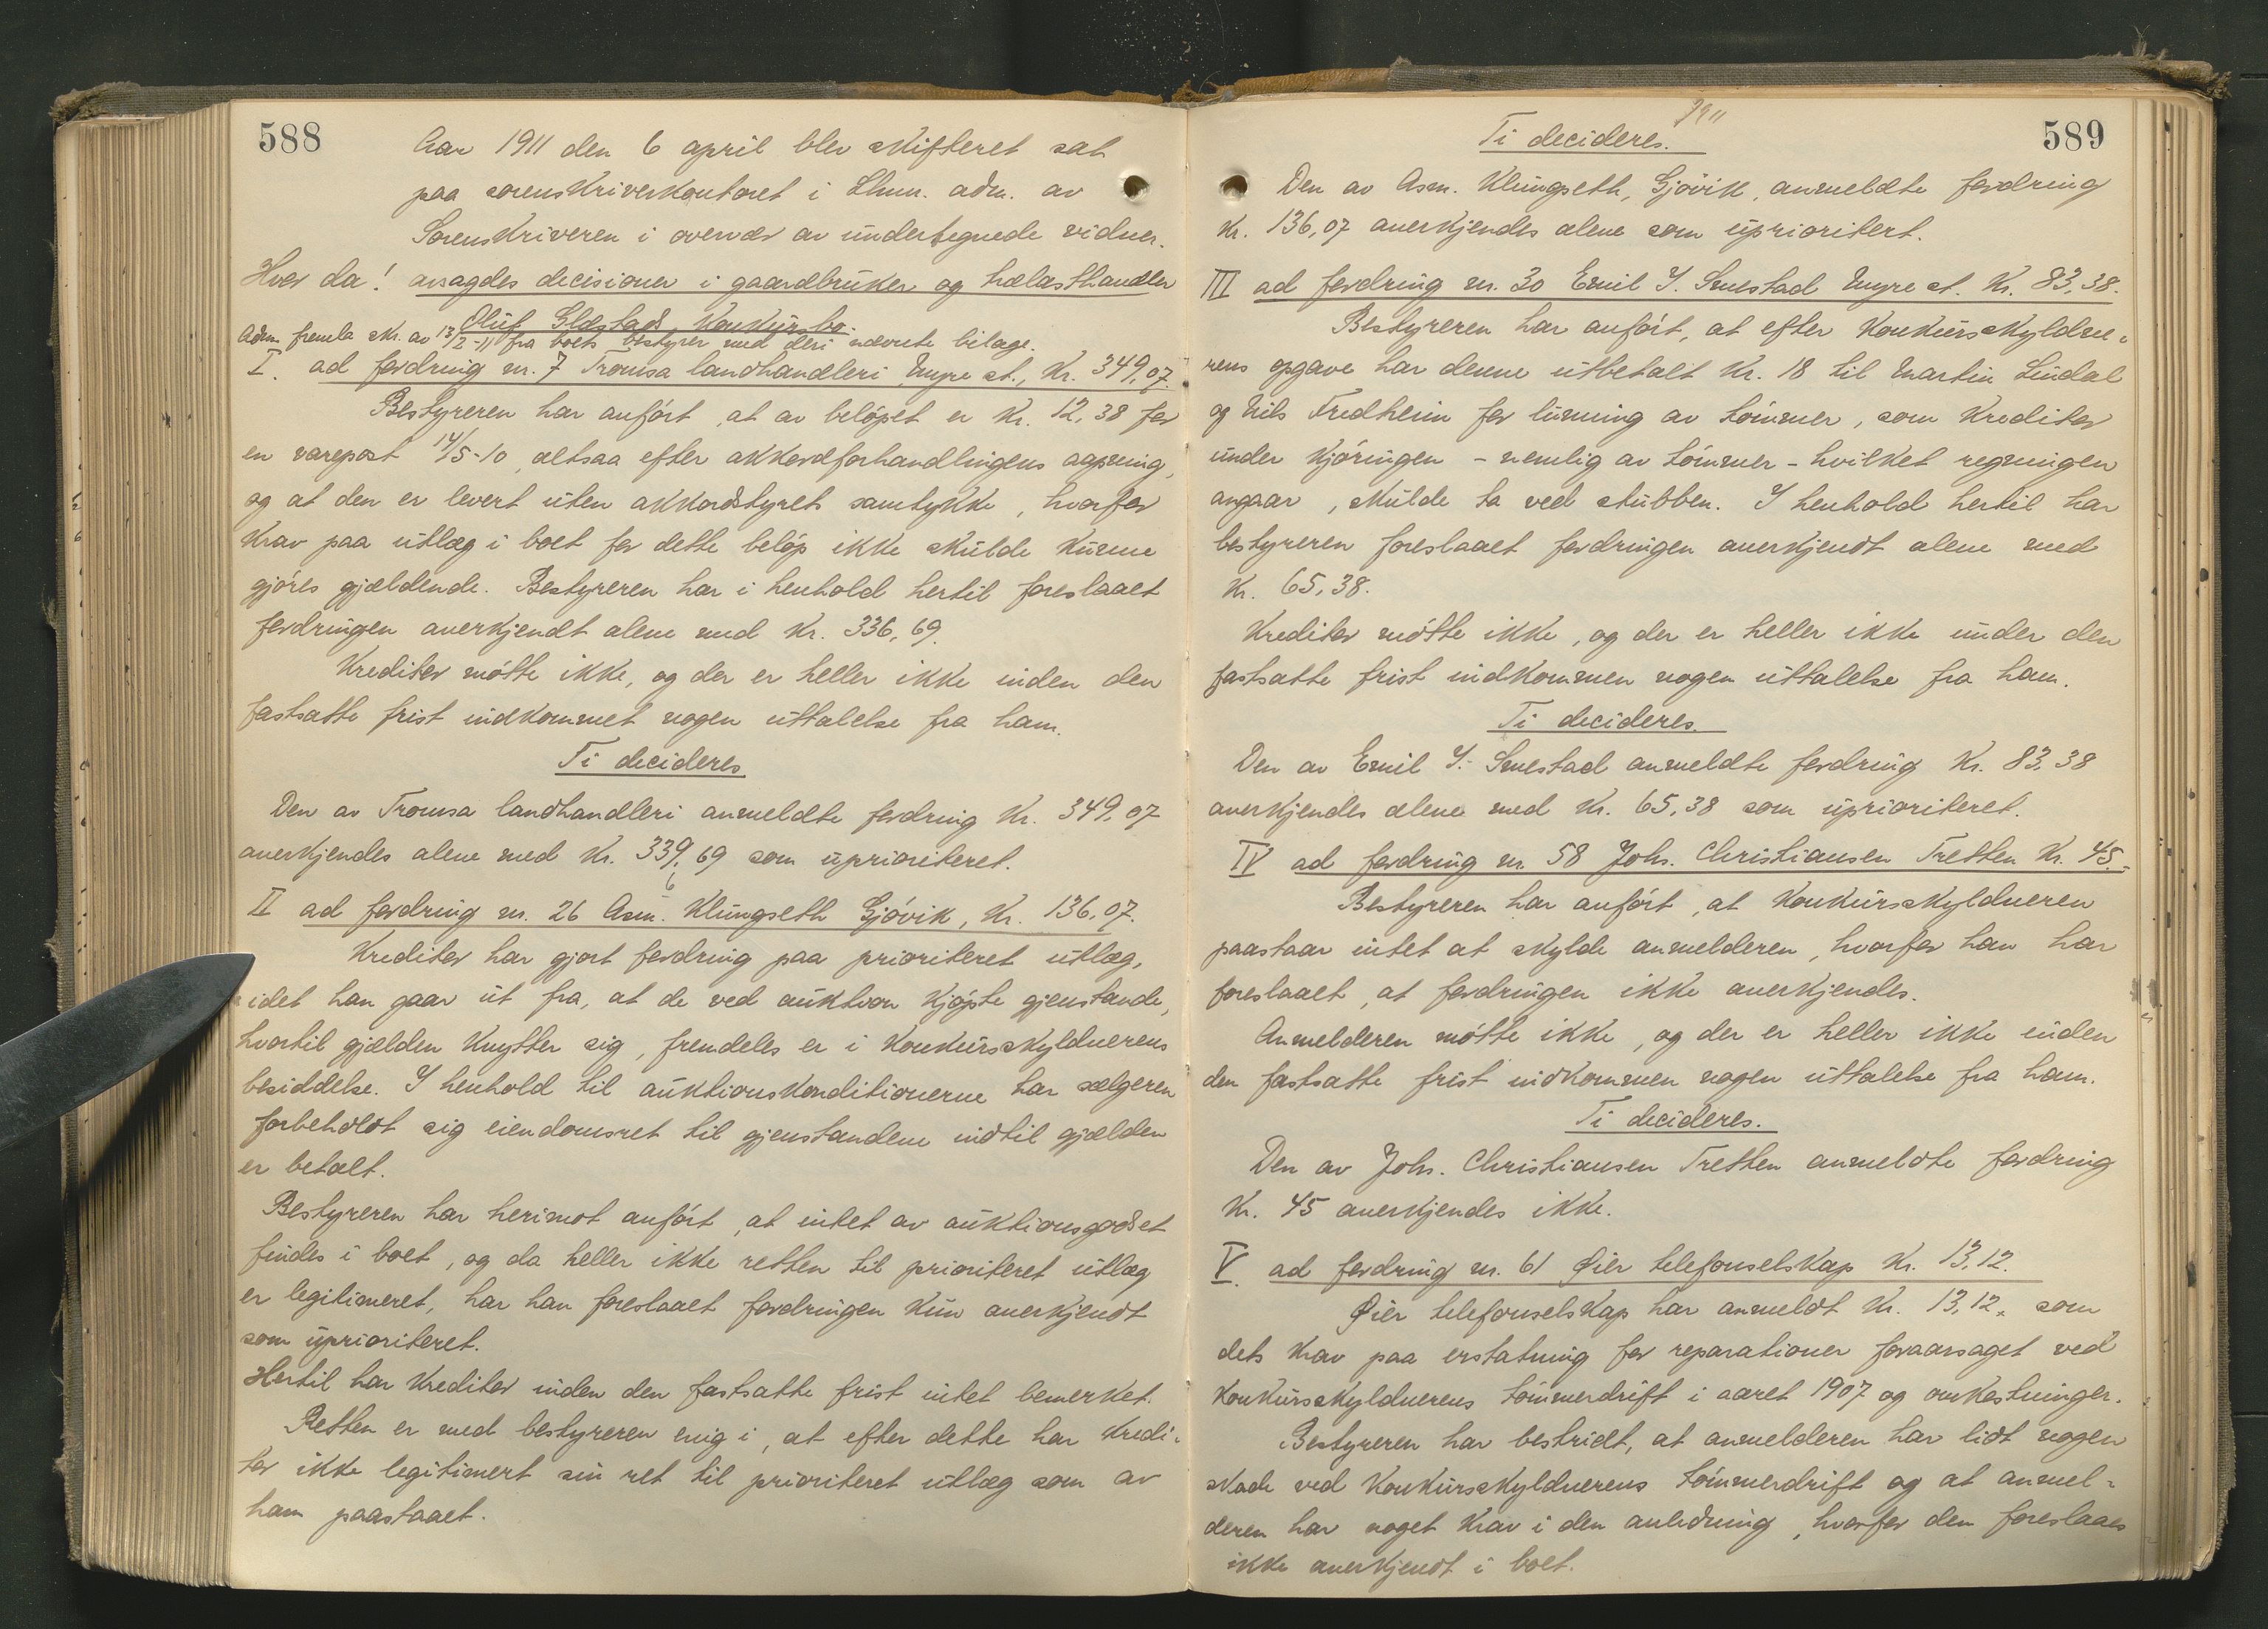 588
Aar 1911 den 6 april blev skifteret sat
paa sorenskriverkontoret i Lhmr. adm. av
Sorenskriveren i overvær av undertegnede vidner.
Hvor da! avsagdes decisioner i gaardbruker og hælasthandler
Oluf Glæstads konkursbo.
Adm. fremla skr. av 13/2-11 fra boets bestyrer med deri nævnte bilage.
I. ad fordring nr. 7 Tromsa landhandleri Myre st., Kr. 349,07.
Bestyreren har anført, at av beløpet er Kr. 12,38 for
en varepost 14/5-10, altsaa efter akkordforhandlingens aapning,
og at den er levert uten akkordstyrets samtykke, hvorfor
krav paa utlæg i boet for dette beløp ikke skulde kunne
gjøres gjældende. Bestyreren har i henhold hertil foreslaaet
fordringen anerkjendt alene med Kr. 336,69.
Kreditor møtte ikke, og der er heller ikke inden den
fastsatte frist indkommet nogen uttalelse fra ham.
Ti decideres
Den av Tromsa landhandleri anmeldte fordring Kr. 349,07
anerkjendes alene med Kr. 339,69 som uprioriteret.
6
II ad fordring nr. 26 Asm. Klungseth Gjøvik, Kr. 136,07.
Kreditor har gjort fordring paa prioriteret utlæg,
idet han gaar ut fra, at de ved auktion kjøpte gjenstande,
hvortil gjælden knytter sig, fremdeles er i konkursskyldnerens
besiddelse. I henhold til auktionskonditionerne har sælgeren
forbeholdt sig eiendomsret til gjenstandene indtil gjælden
er betalt.
Bestyreren har herimot anført, at intet av auktionsgodset
findes i boet, og da heller ikke retten til prioriteret utlæg
er legitimeret, har han foreslaaet fordringen kun anerkjendt
som uprioriteret.
Hertil har kreditor inden den fastsatte frist intet bemerket.
Retten er med bestyreren enig i, at efter dette har kredi-
tor ikke legitimert sin ret til prioriteret utlæg som av
ham paastaaet.
1911
589
Ti decideres.
Den av Asm. Klungseth, Gjøvik, anmeldte fordring
Kr. 136,07 anerkjendes alene som uprioritert.
III ad fordring nr. 30 Emil I. Smestad Myre st. Kr. 83,38.
Bestyreren har anført, at efter konkursskyldne-
rens opgave har denne utbetalt Kr. 18 til Martin Lindal
og Nils Fredheim for lunning av tømmer, som kreditor
under kjøringen - nemlig av tømmer - hvilket regningen
angaar, skulde ta ved stubben. I henhold hertil har
bestyreren foreslaaet fordringen anerkjendt alene med
Kr. 65,38.
Kreditor møtte ikke, og der er heller ikke under den
fastsatte frist indkommen nogen uttalelse fra ham.
Ti decideres.
Den av Emil I. Smestad anmeldte fordring Kr. 83,38
anerkjendes alene med Kr. 65,38 som uprioriteret.
IV ad fordring nr. 58 Johs. Christiansen Tretten Kr. 45.-
Bestyreren har anført, at konkursskyldneren
paastaar intet at skylde anmelderen, hvorfor han har
foreslaaet, at fordringen ikke anerkjendes.
Anmelderen møtte ikke, og der er heller ikke inden
den fastsatte frist indkommen nogen uttalelse fra ham.
Ti decideres.
Den av Johs. Christiansen Tretten anmeldte fordring
Kr. 45 anerkjendes ikke.
V. ad fordring nr. 61 Øier telefonselskap Kr. 13,12.
Øier telefonselskap har anmeldt Kr. 13,12, som
dets krav paa erstatning for reparationer foraarsaget ved
konkursskyldnerens tømmerdrift i aaret 1907 og omkostninger.
Bestyreren har bestridt, at anmelderen har lidt nogen
skade ved konkursskyldnerens tømmerdrift og at anmel-
deren har noget krav i den anledning, hvorfor den foreslaaes
ikke anerkjendt i boet.